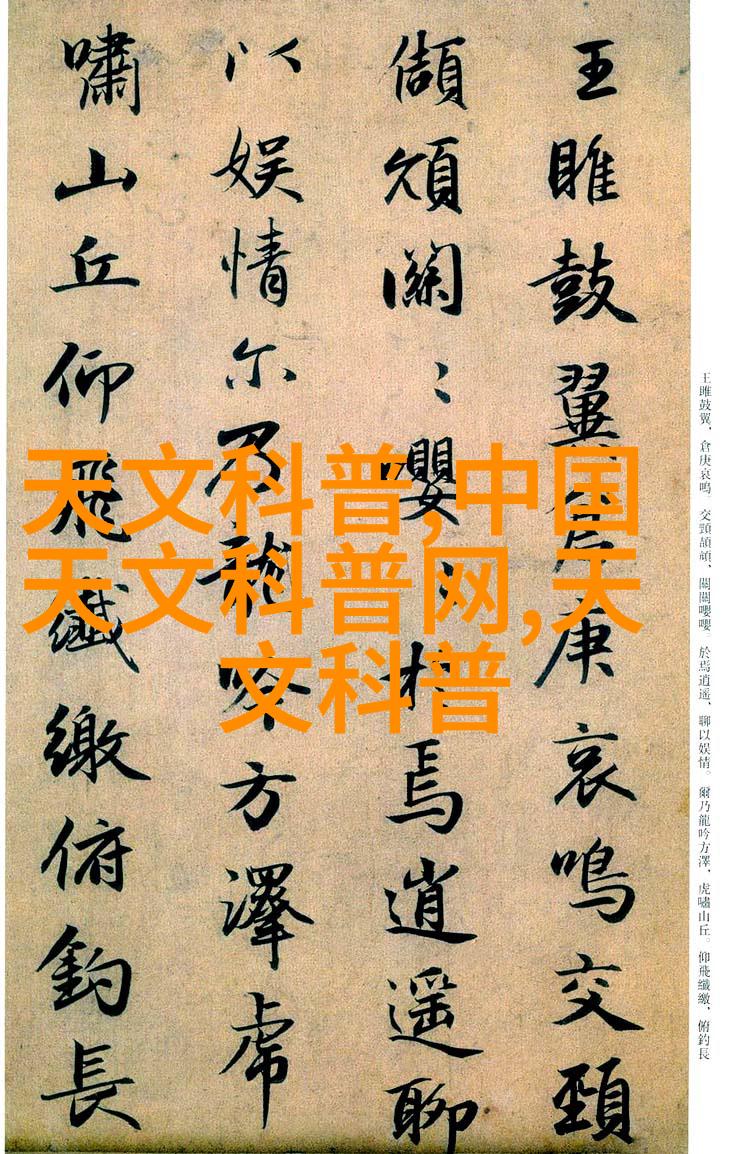 王雎鼓翼倉庚哀鳴交頸
頡頏關〻嚶〻於焉逍遥聊
以娱情尔乃龍吟方澤虎
嘯山丘仰飛纖繳俯釣長
天文科普,中国
天文科普网,天
文科普
王雎鼓翼，倉庚哀鳴。交頸頡頏，關關嚶嚶。於焉逍遥，聊以娱情。爾乃龍吟方澤，虎嘯山丘。仰飛纖繳，俯釣長